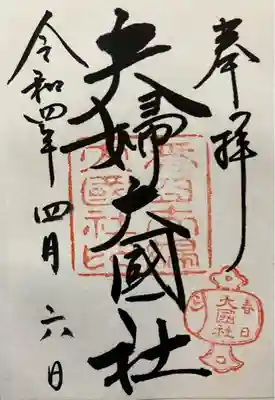 奉拝
夫婦大國社
春日
大國社
令和四年四月六日